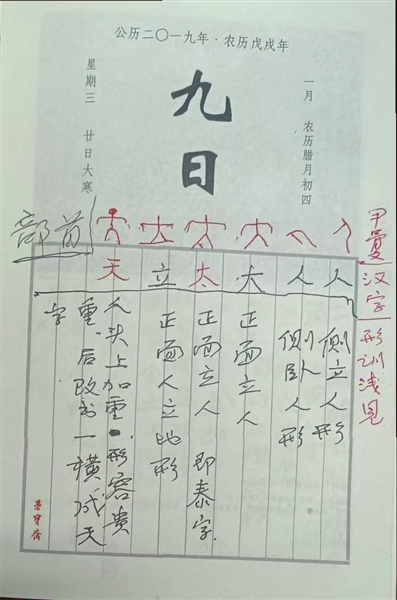 公历二〇一九年·农历戊戌年
一月 农历腊月初四
九日
星期三 廿日大寒
汉字形训浅
部首
人 侧立人形
人 侧卧人形
大 正面立人
太 正面立人 即泰字.
立 正面人立地形
天 人头上加重 形容贵
重.后改为一横,成天
字